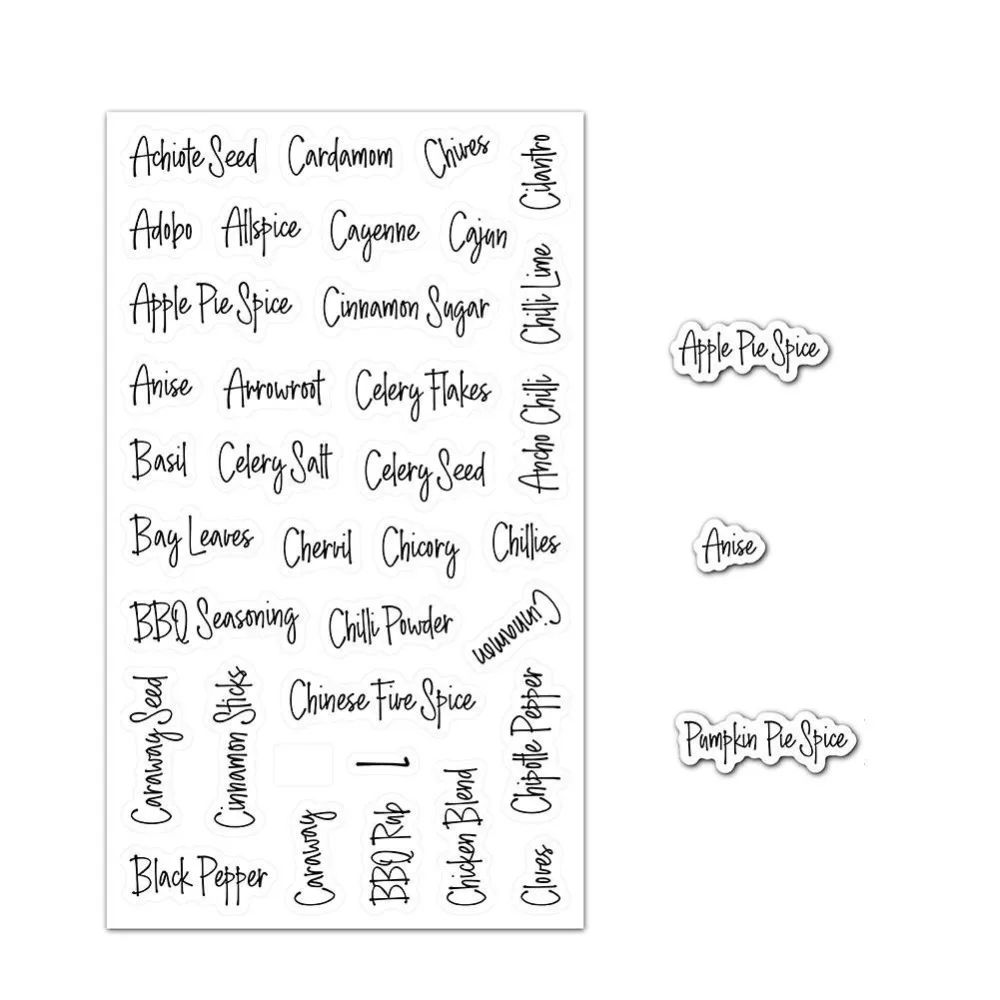 Achiote Seed Cardamom Chives Cilantro
Adobo Allspice Cayenne Cajun
Chilli Lime
Apple Pie Spice Cinnamon Sugar
Anise Arrowroot Celery Flakes
Ancho Chilli
Basil Celery Salt Celery Seed
Bay Leaves Chervil Chicory Chillies
BBQ Seasoning Chilli Powder Cinnamon
Caraway Seed Cinnamon Sticks Chinese Five Spice Chipotle Pepper
1
Black Pepper Caraway BBQ Rub Chicken Blend Cloves
Apple Pie Spice
Anise
Pumpkin Pie Spice